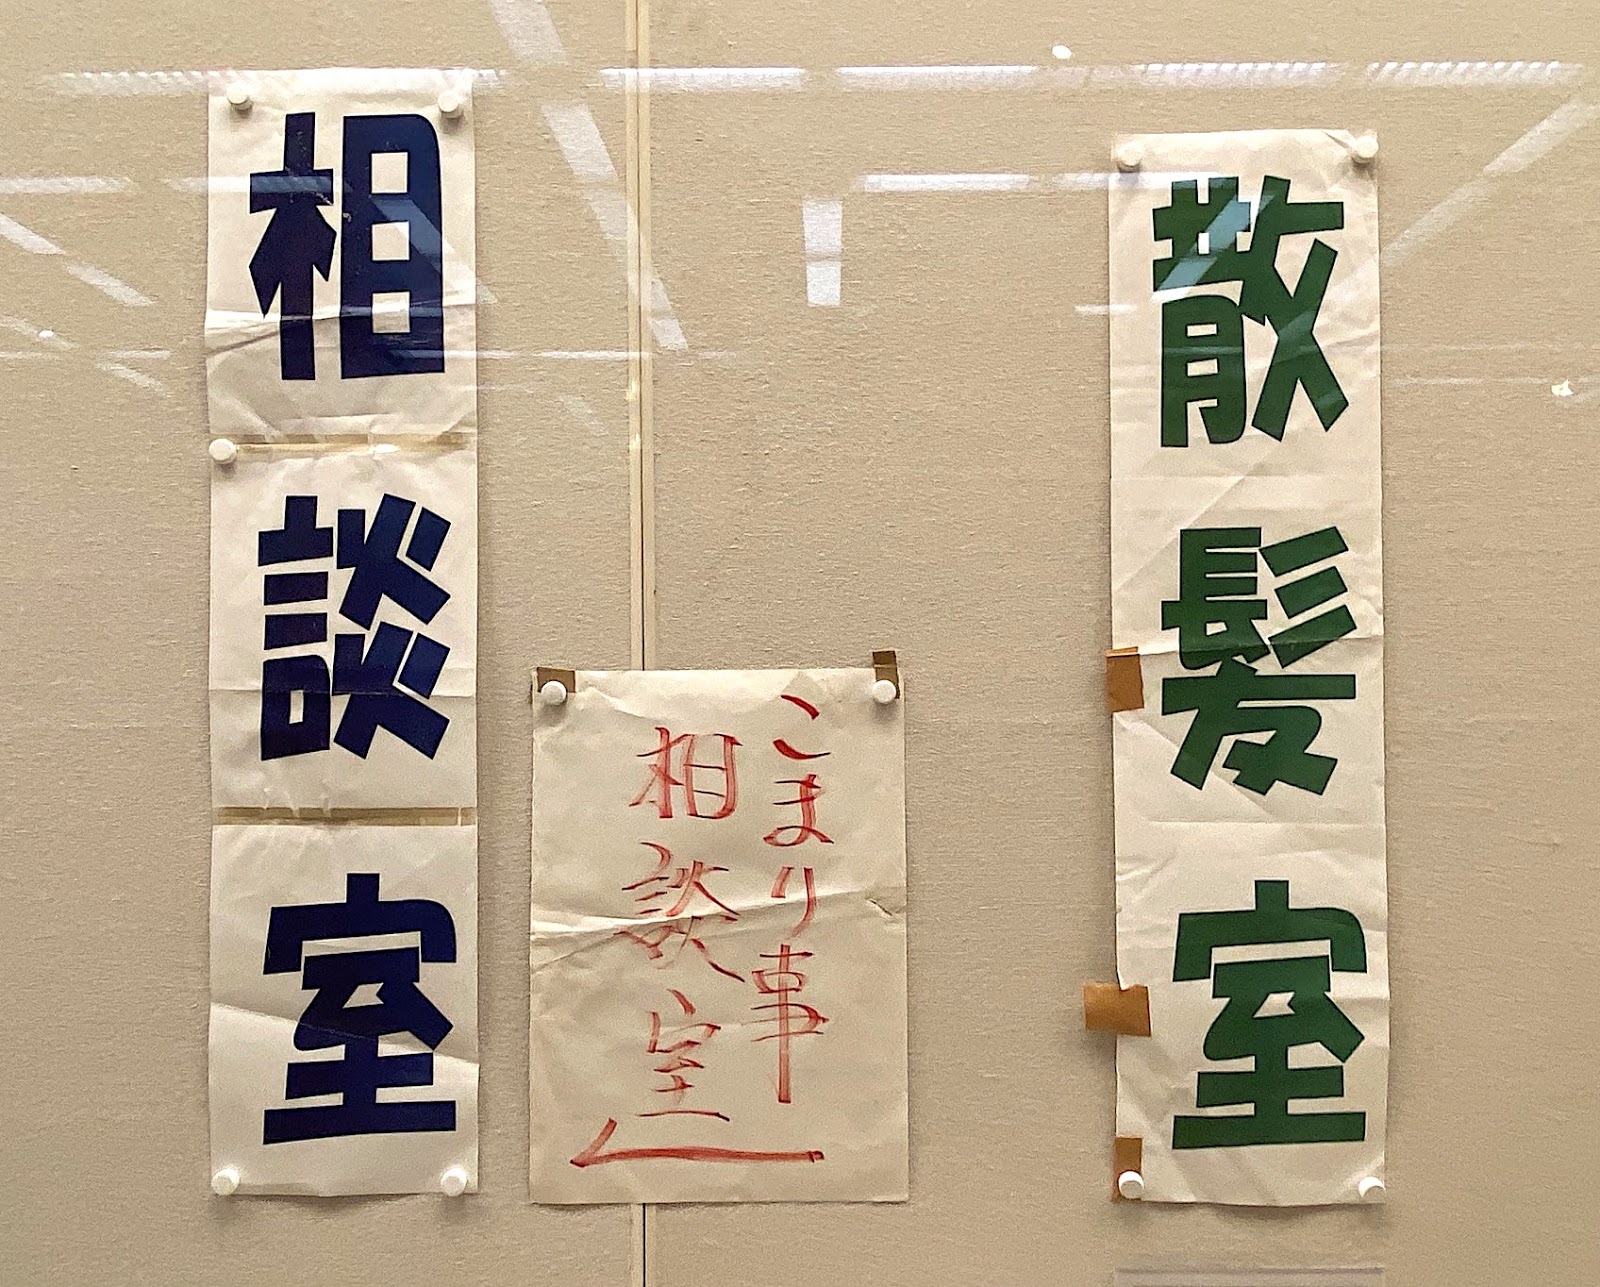 散髪室
こまり事
相談室
相談室